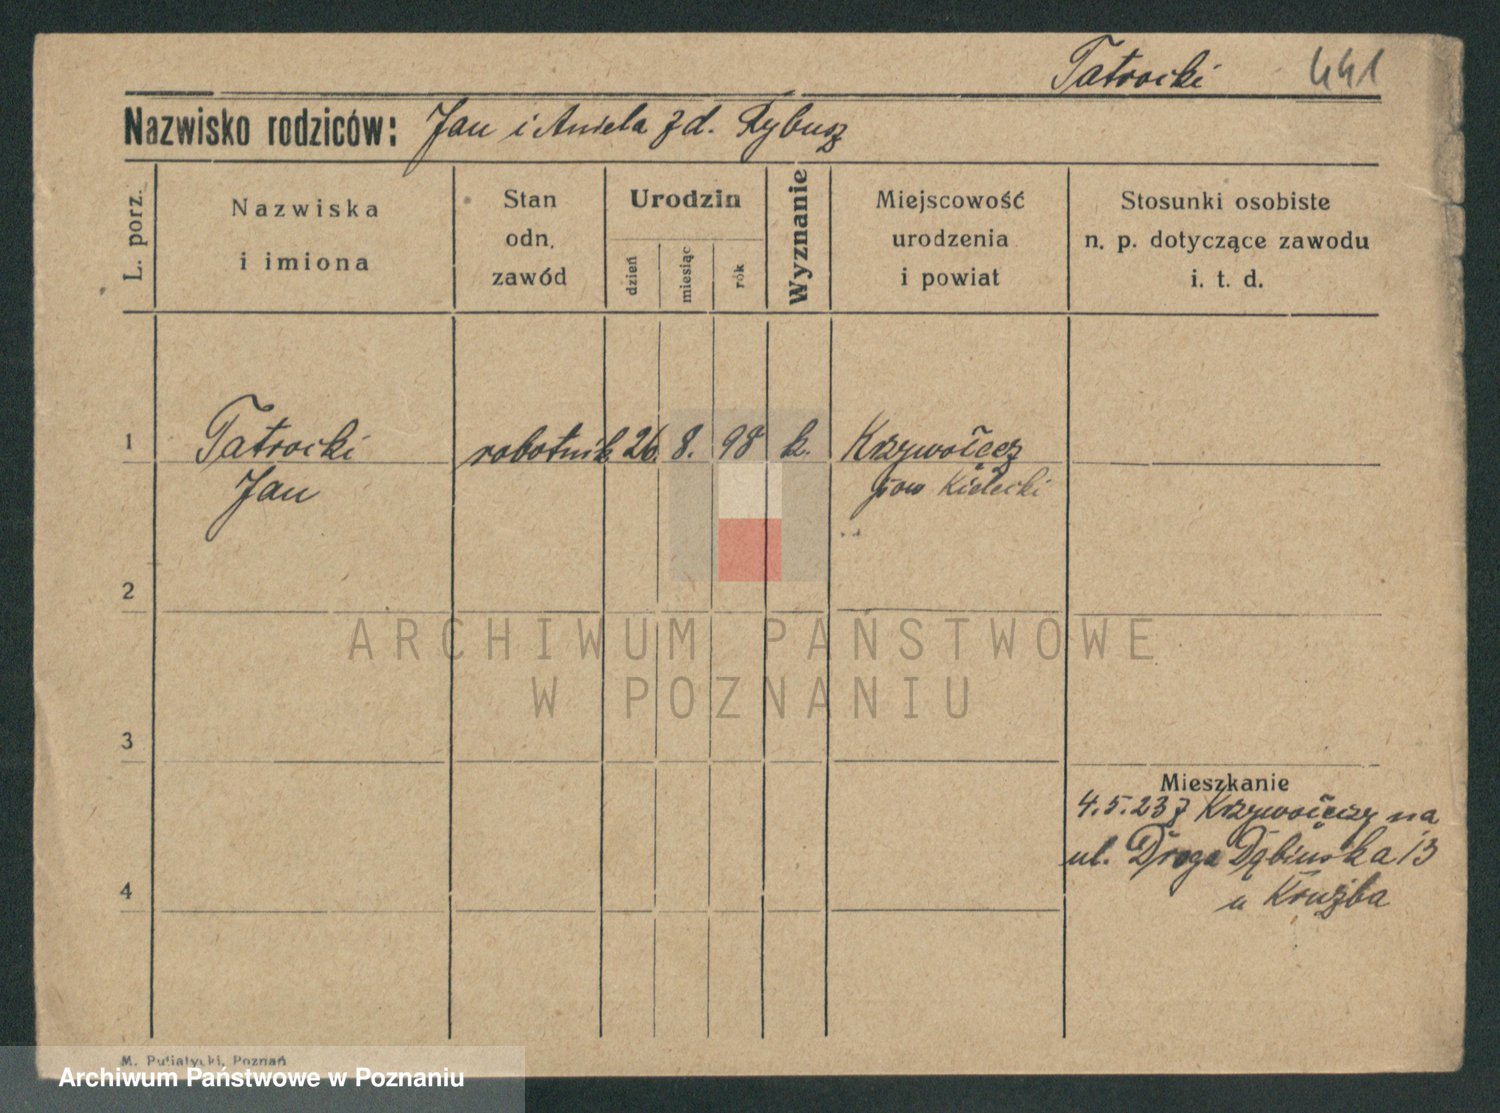 Tatrocki 441
Nazwisko rodziców: Jan i Aniela z d. Rybusz
L. porz.
Nazwiska
i imiona
Stan
odn.
zawód
Urodzin
dzień
miesiąc
rok
Wyznanie
Miejscowość
urodzenia
i powiat
Stosunki osobiste
n. p. dotyczące zawodu
i. t. d.
1 Tatrocki robotnik 26. 8. 98 k.
Jan pow Kielecki
2
ARCHIWUM PAŃSTWOWE
W POZNANIU
3
Mieszkanie
4.5.23 z na
ul. Droga Dąbińska 13
4
u Krużba
M. Putiatycki, Poznań
Archiwum Państwowe w Poznaniu